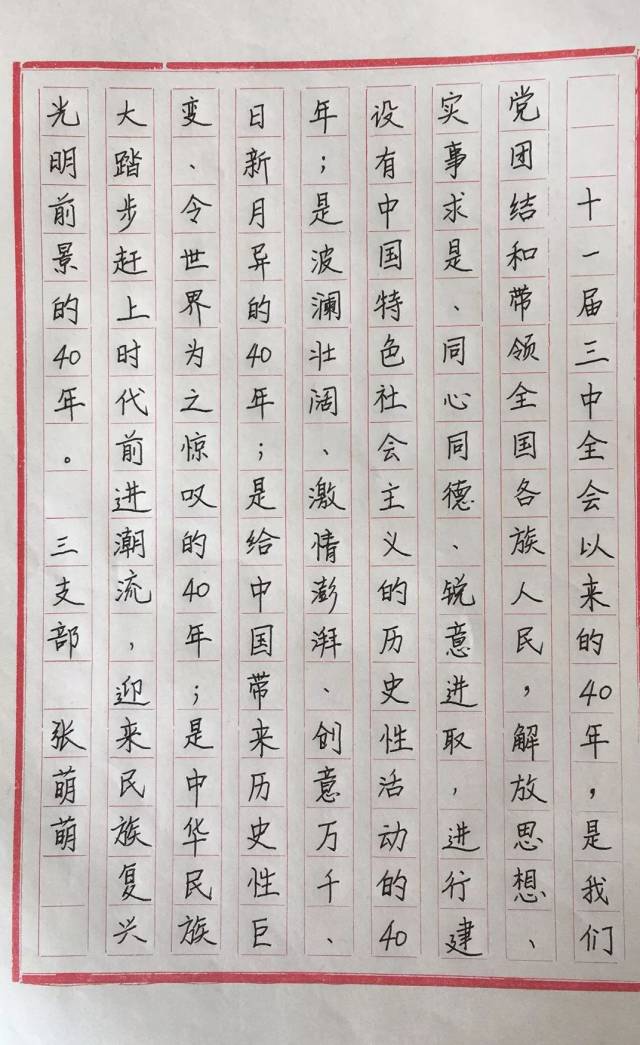 十一届三中全会以来的40年，是我们
党团结和带领全国各族人民，解放思想、
实事求是、同心同德、锐意进取，进行建
设有中国特色社会主义的历史性活动的40
年；是波澜壮阔、激情澎湃、创意万千、
日新月异的40年；是给中国带来历史性巨
变、令世界为之惊叹的40年；是中华民族
大踏步赶上时代前进潮流，迎来民族复兴
光明前景的40年。 三支部 张萌萌